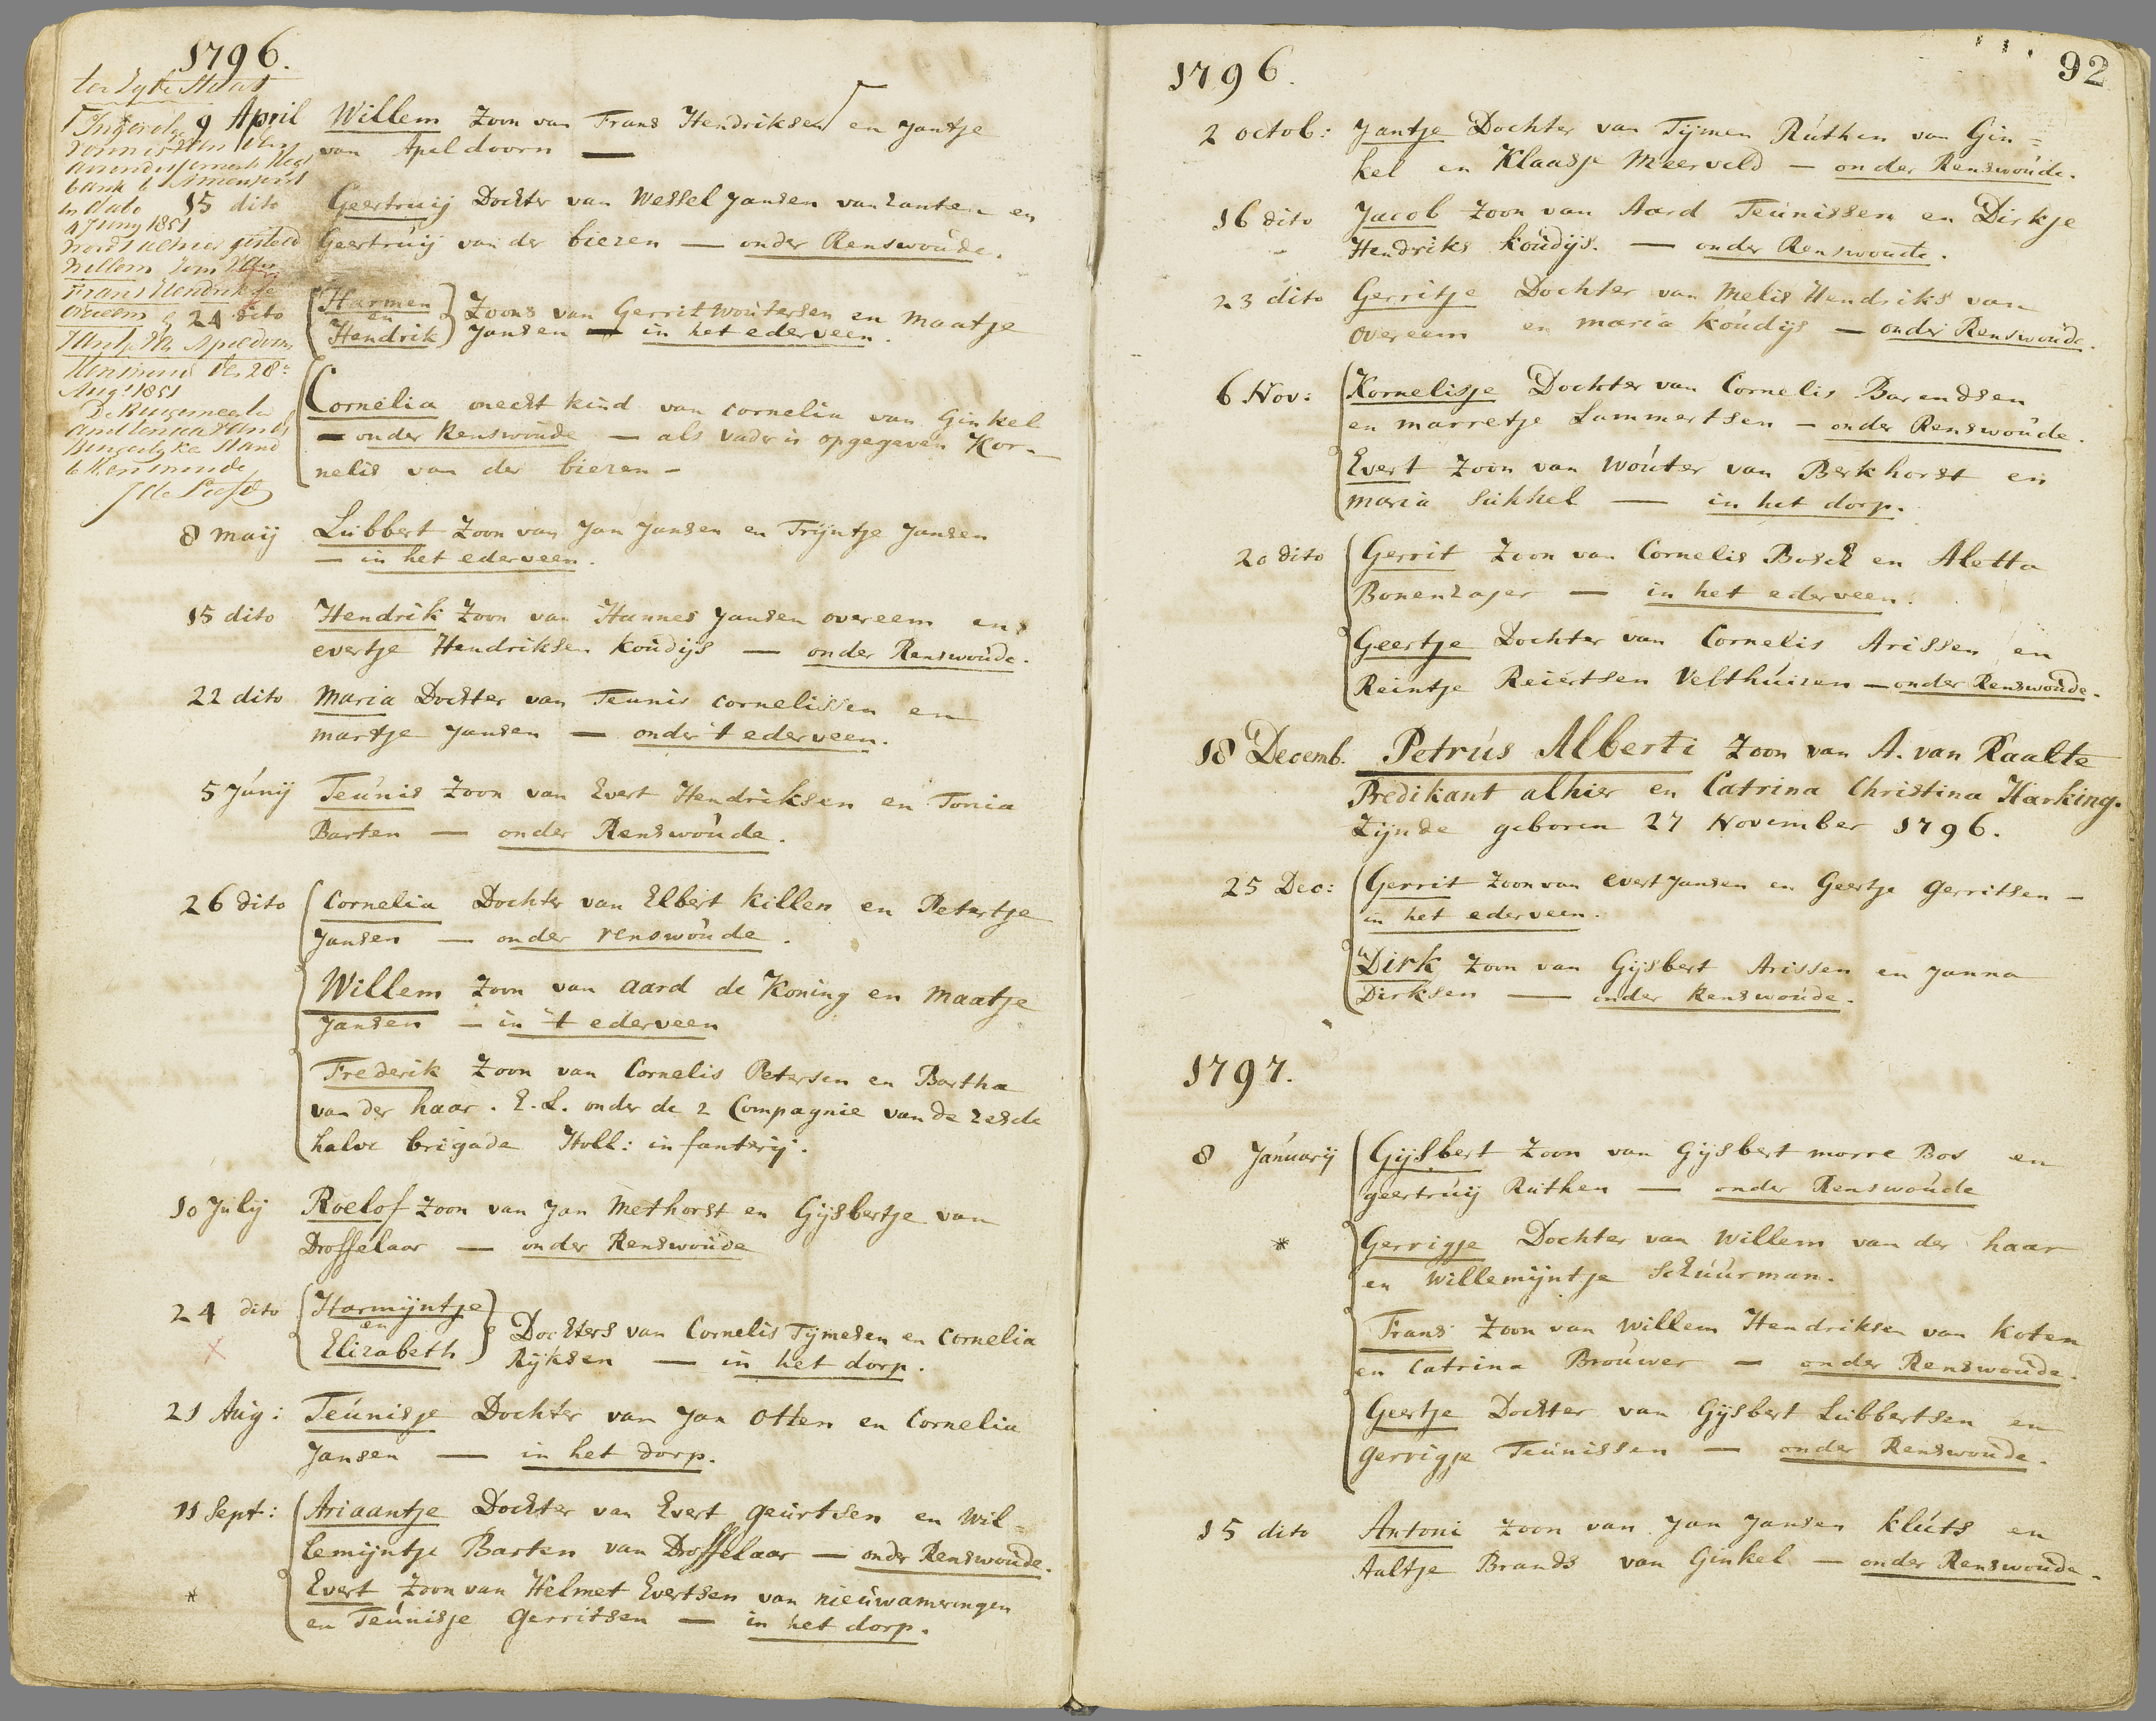 1796.
9 April Willem Zoon van Frans Hendriksen en Jantje
van Apeldoorn —
15 dito Geertruij Dochter van Wessel Jansen van zanten en
Geertruij van der biezen — onder Renswoude.
24 dito Harmen en Hendrik Zoons van Gerrit Woutersen en Maatje
Jansen — in het ederveen.
Cornelia onecht kind van Cornelia van Ginkel
— onder Renswoude — als vader is opgegeven Kor-
nelis van der biezen —
Ingevolge
vonnis
Arrondissements Regt
bank te Amersfoort
in dato
4 Juny 1851
wordt alhier gesteld
Willem Zoon van
Frans Hendrikse
overeem
Jantje van Apeldoorn
Renswoude den 28e
Aug. 1851
De Burgemeester
Ambtenaar van den
Burgerlyke Stand
te Renswoude
8 Maij Lubbert Zoon van Jan Jansen en Trijntje Jansen
— in het ederveen.
15 dito Hendrik Zoon van Hannes Jansen overeem en
evertje Hendriksen Koudijs — onder Renswoude.
22 dito Maria Dochter van Teunis Cornelissen en
martje Jansen — onder 't ederveen.
5 Junij Teunis Zoon van Evert Hendriksen en Tonia
Barten — onder Renswoude.
26 dito Cornelia Dochter van Elbert Killen en Petertje
Jansen — onder renswoude.
Willem Zoon van Aard de Koning en Maatje
Jansen — in 't ederveen
Frederik Zoon van Cornelis Petersen en Bartha
van der haar. E.L. onder de 2 Compagnie van de zesde
halve brigade Holl: infanterij.
10 Julij Roelof Zoon van Jan Methorst en Gijsbertje van
Droffelaar — onder Renswoude
24 dito Harmijntje en Elizabeth Dochters van Cornelis Tijmesen en Cornelia
Rijksen — in het dorp.
21 Aug: Teunisje Dochter van Jan Otten en Cornelia
Jansen — in het dorp.
11 Sept: Ariaantje Dochter van Evert Geurtsen en Wil=
lemijntje Barten van Droffelaar — onder Renswoude.
* Evert Zoon van Helmet Evertsen van nieuwameringen
en Teunisje Gerritsen — in het dorp.
1796. 92
2 octob: Jantje Dochter van Tijmen Ruthen van Gin=
kel en Klaasje Meerveld — onder Renswoude.
16 dito Jacob Zoon van Aard Teunissen en Dirkje
Hendriks Koudijs. — onder Renswoude.
23 dito Gerritje Dochter van Melis Hendriks van
overeem en maria Koudijs — onder Renswoude.
6 Nov: Kornelisje Dochter van Cornelis Barendsen
en marretje Lammertsen — onder Renswoude.
Evert Zoon van Wouter van Berkhorst en
maria Sukkel — in het dorp.
20 dito Gerrit Zoon van Cornelis Bosch en Aletta
Bonenzajer — in het ederveen.
Geertje Dochter van Cornelis Arissen en
Reintje Reiertsen Velthuizen — onder Renswoude.
18 Decemb. Petrus Alberti Zoon van A. van Raalte
Predikant alhier en Catrina Christina Harking.
Zijnde geboren 27 November 1796.
25 Dec: Gerrit Zoon van Evert Jansen en Geertje Gerritsen —
in het ederveen.
Dirk Zoon van Gijsbert Arissen en Janna
Dirksen — onder Renswoude.
1797.
8 Januarij Gijsbert Zoon van Gijsbert morre Bos en
geertruij Ruthen — onder Renswoude
* Gerrigje Dochter van Willem van der haar
en Willemijntje Schuurman.
Frans Zoon van Willem Hendriksen van Koten
en Catrina Brouwer — onder Renswoude.
Geertje Dochter van Gijsbert Lubbertsen en
Gerrigje Teunissen — onder Renswoude.
15 dito Antoni Zoon van Jan Jansen Kluts en
Aaltje Brands van Ginkel — onder Renswoude.